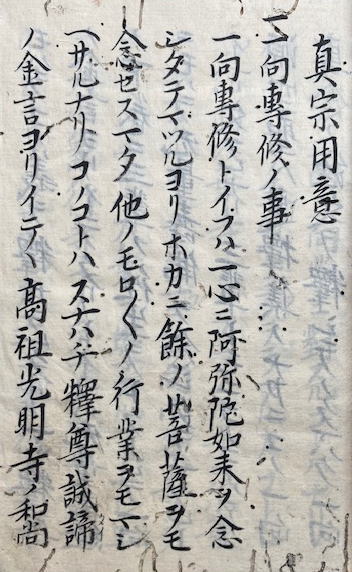 真宗用意
一向専修ノ事
一向専修トイフハ一心ニ阿弥陀如来ヲ念
シタテマツルヨリホカニ餘ノ菩薩ヲモ
念セスマタ他ノモロ〱ノ行業ヲモマシ
ヘサルナリコノコトハスナハチ釋尊誠諦
ノ金言ヨリイテヽ高祖光明寺ノ和尚